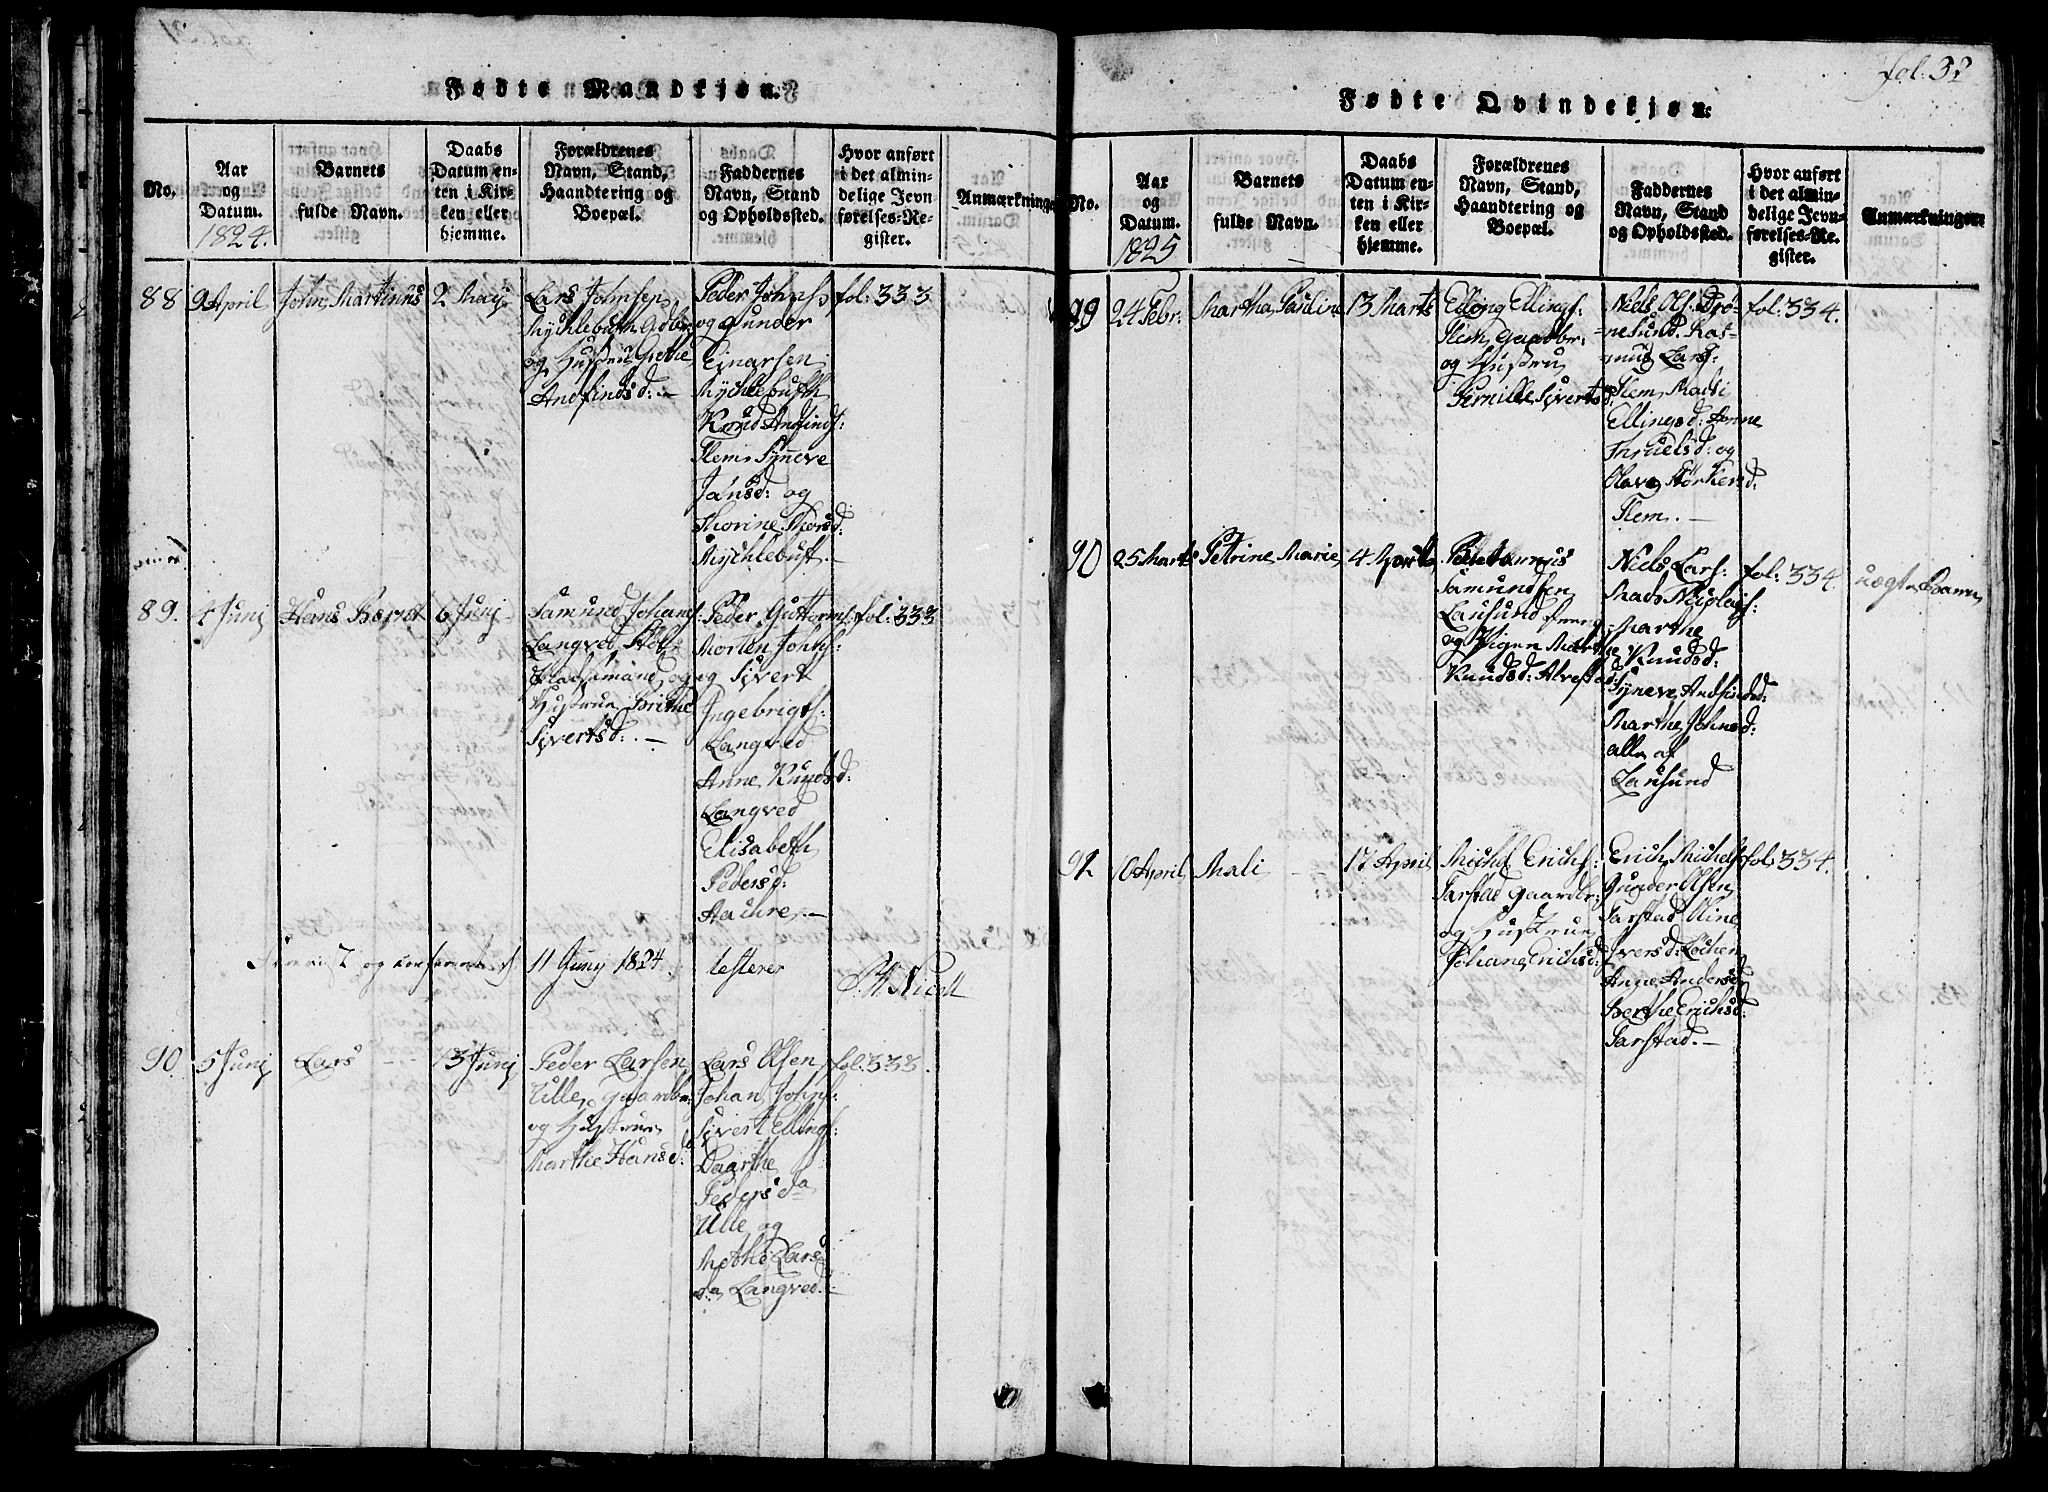 Fødte Mandkjøn.
No.
Aar
og
Datum.
1824.
Barnets
fulde Navn.
Daabs
Datum en-
ten i Kir-
ken eller
hjemme.
Forældrenes
Navn, Stand,
Haandtering og
Boepæl.
Faddernes
Navn, Stand
og Opholdssted.
Hvor anført
i det almin-
delige Jevn
førelses-Re-
gister.
Anmærkninge
88
9 April
John Martinus
2 May
Lars Johnsen
Mychlebusth Gdbr:
og Hustrue Grethe
Andfindsd: —
Peder Johns:
og Gunder
Einarsen
Mychlebusth
Knud Anfinds:
Flem, Synneve
Jansd: og
Thorine Thorsd:
Mychlebust. —
fol: 333
89.
4 Junj
Hans Bernt
6 Junj
Samund Johans:
Langved
Pladsmand og
Hustrue Brithe
Sivertsd: —
Peder Guttorms:
Morten Johns:
og Sivert
Ingebrigts:
Langved
Anne Knudsd:
Langved
Elisabeth
Pedersd:
Hauhre. —
fol: 333
og
11 Juny 1824.
testerer
90
5 Junj
Lars - -
13 Junj
Peder Larsen
Ulle, Gaardbr:
og Hustrue
Marthe Hansd:
Lars Olsen
Johan Johns:
Sivert Ellings:
Daarthe
Pedersda
Ulle og
Methe Lars
da Langved: -
fol: 333.
fol: 32
Fødte Qvindekjøn:
No.
Aar
og
Datum.
1825
Barnets
fulde Navn.
Daabs
Datum en-
ten i Kir-
ken eller
hjemme.
Forældrenes
Navn, Stand,
Haandtering og
Boepæl.
Faddernes
Navn, Stand
og Opholdssted.
Hvor anført
i det almin-
delige Jevn-
førelses-Re-
gister.
Anmærkninger
89
24 Febr:
Martha Pauline
13 Marts
Elling Ellings:
Flem Gaardbr:
og Hustrue
Pernille Sivertsd:
Niels Ols:
Ras-
mus Lars:
Flem, Mads
Ellingsd: Anne
og
Flem. —
fol: 334.
90
25 Marts
Petrine Marie
4 April
Samundsen
Lausund
og Pigen Marthe
Knudsd:
Niels Lars:
Mads Nicolays:
Marthe
Knudsd:
Synneve Andfindsd:
Marthe Johnsd:
alle af
Lausund
fol: 334.
uægte Barn
91
10 April
Mali -
17 April
Michel Erichs:
Farstad Gaardbr:
og Hustrue
Johane Erichsd:
Erich Michels:
Gunder Olsen
Farstad, Oline
Iversd:
Anne Andersd:
Berthe Erichsd:
Farstad. —
fol: 334.